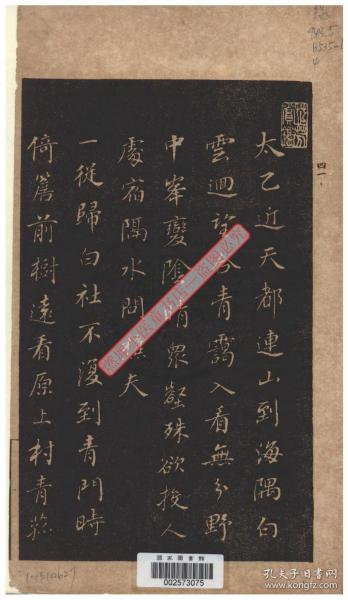 太乙近天都連山到海隅白
雲迴望合青靄入看無分野
中峯變陰晴眾壑殊欲投人
處宿隔水問樵夫
一從歸白社不復到青門時
倚簷前樹遠看原上村青菰
四一
國家圖書館
002573075
孔夫子旧书网